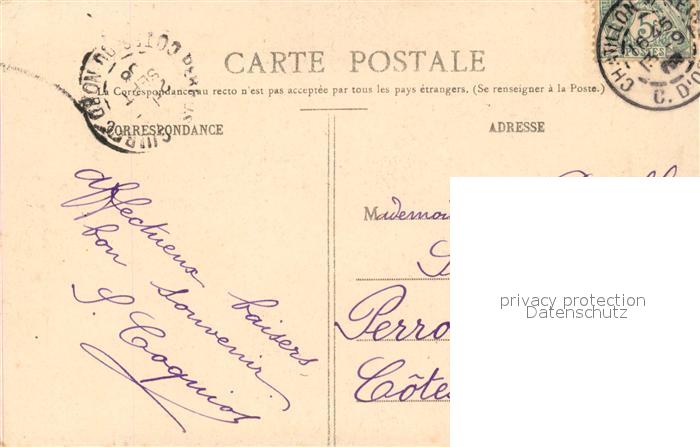 CARTE POSTALE
La Correspondance au recto n'est pas acceptée par tous les pays étrangers. (Se renseigner à la Poste.)
CORRESPONDANCE
ADRESSE
affectueux baisers
bon souvenir
S. Coquiot
Perro
Côte
5c
POSTES
CHATILLON
C. D'O
privacy protection
Datenschutz